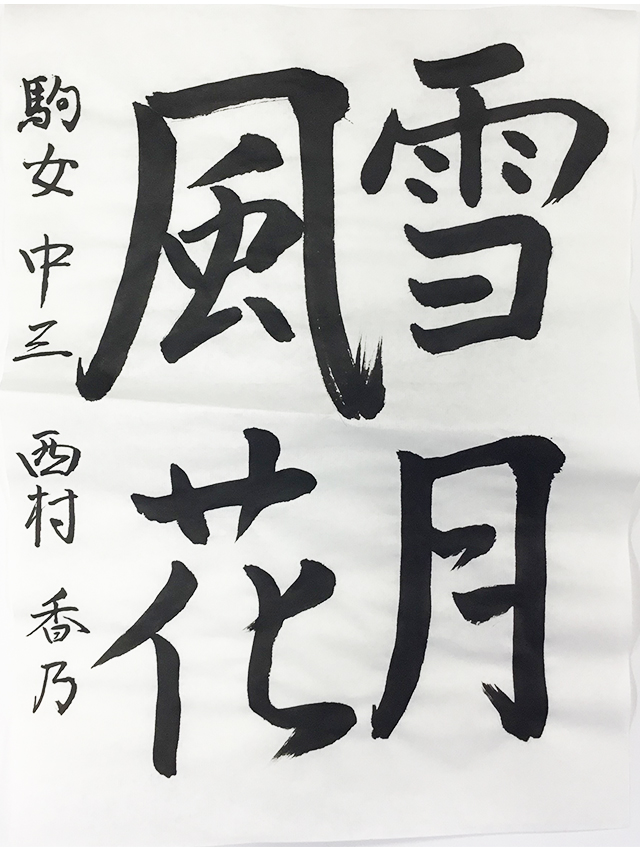 雪月
風花
駒女 中三 西村 香乃